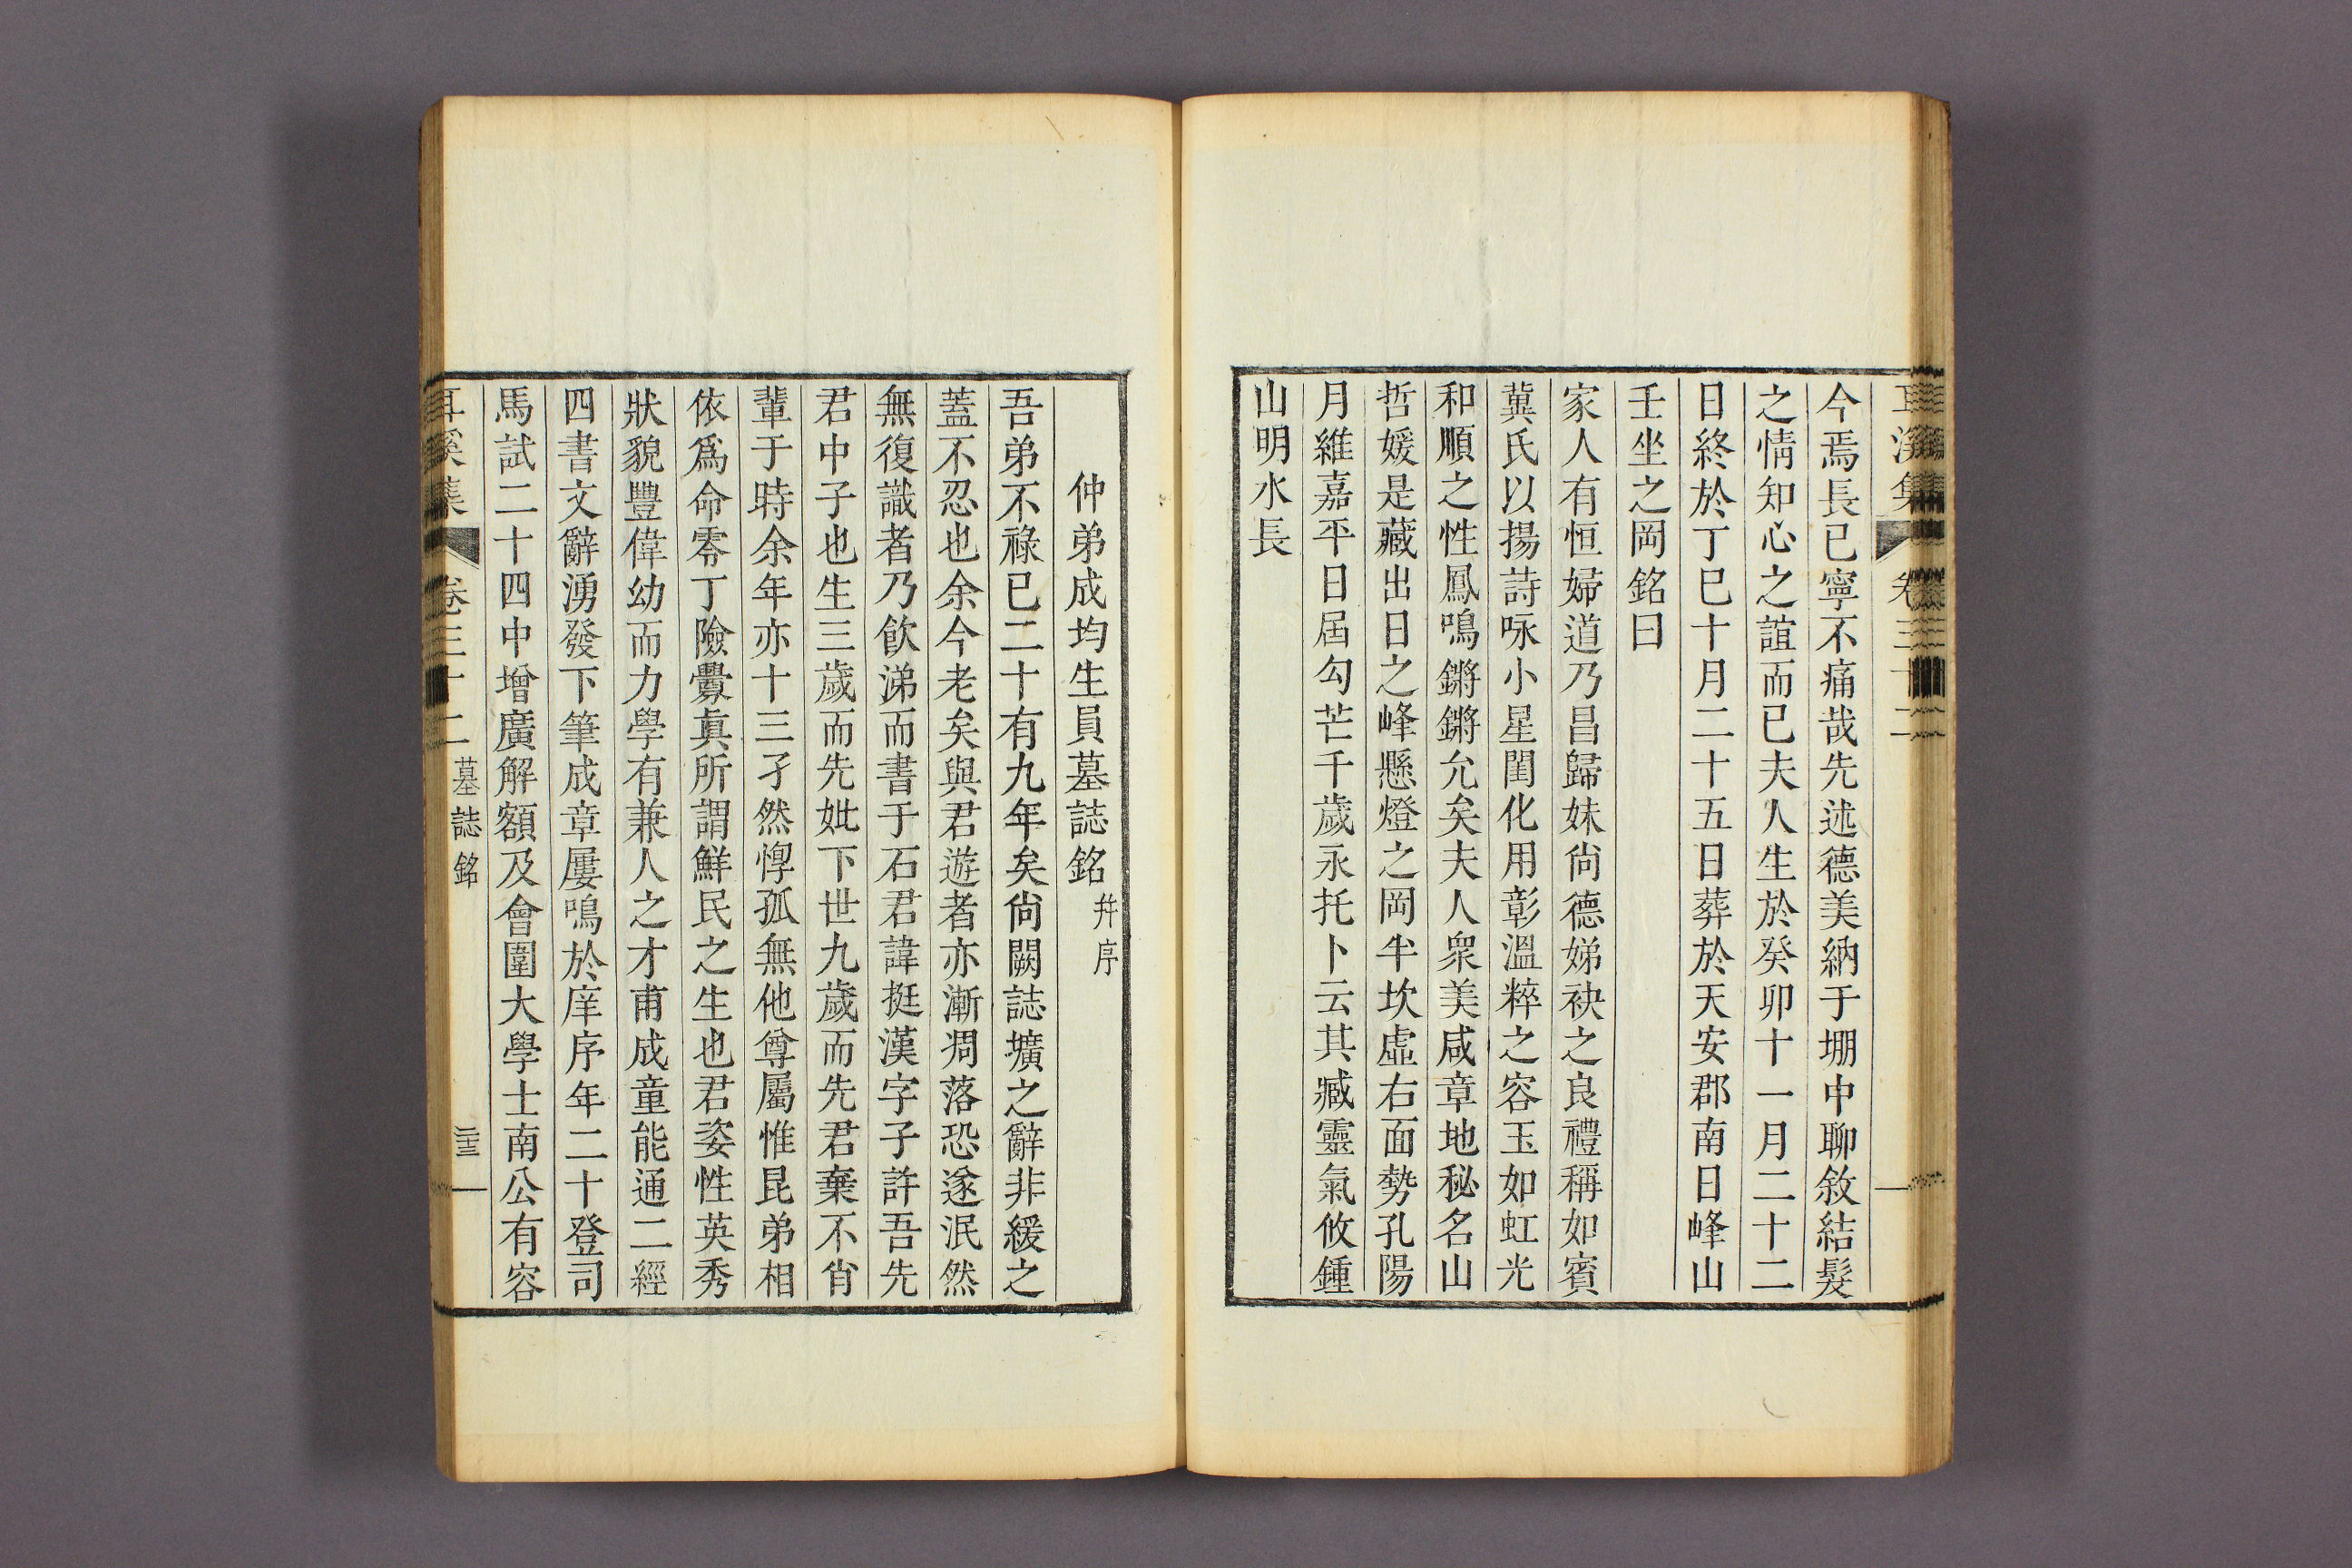 耳溪集 卷三十二
今焉長已寧不痛哉先述德美納于堋中聊敘結髮
之情知心之誼而已夫人生於癸卯十一月二十二
日終於丁巳十月二十五日葬於天安郡南日峰山
壬坐之岡銘曰
家人有恒婦道乃昌歸妹尙德娣袂之良禮稱如賓
冀氏以揚詩咏小星閨化用彰溫粹之容玉如虹光
和順之性鳳鳴鏘鏘允矣夫人衆美咸章地秘名山
哲媛是藏出日之峰懸燈之岡半坎虛右面勢孔陽
月維嘉平日屆勾芒千歲永托卜云其臧靈氣攸鍾
山明水長
仲弟成均生員墓誌銘 幷序
吾弟不祿已二十有九年矣尙闕誌壙之辭非緩之
蓋不忍也余今老矣與君遊者亦漸凋落恐遂泯然
無復識者乃飮涕而書于石君諱挺漢字子許吾先
君中子也生三歲而先妣下世九歲而先君棄不肖
輩于時余年亦十三孑然惸孤無他尊屬惟昆弟相
依爲命零丁險釁眞所謂鮮民之生也君姿性英秀
狀貌豐偉幼而力學有兼人之才甫成童能通二經
四書文辭湧發下筆成章屢鳴於庠序年二十登司
馬試二十四中增廣解額及會圍大學士南公有容
耳溪集 卷三十二 墓誌銘 二十三